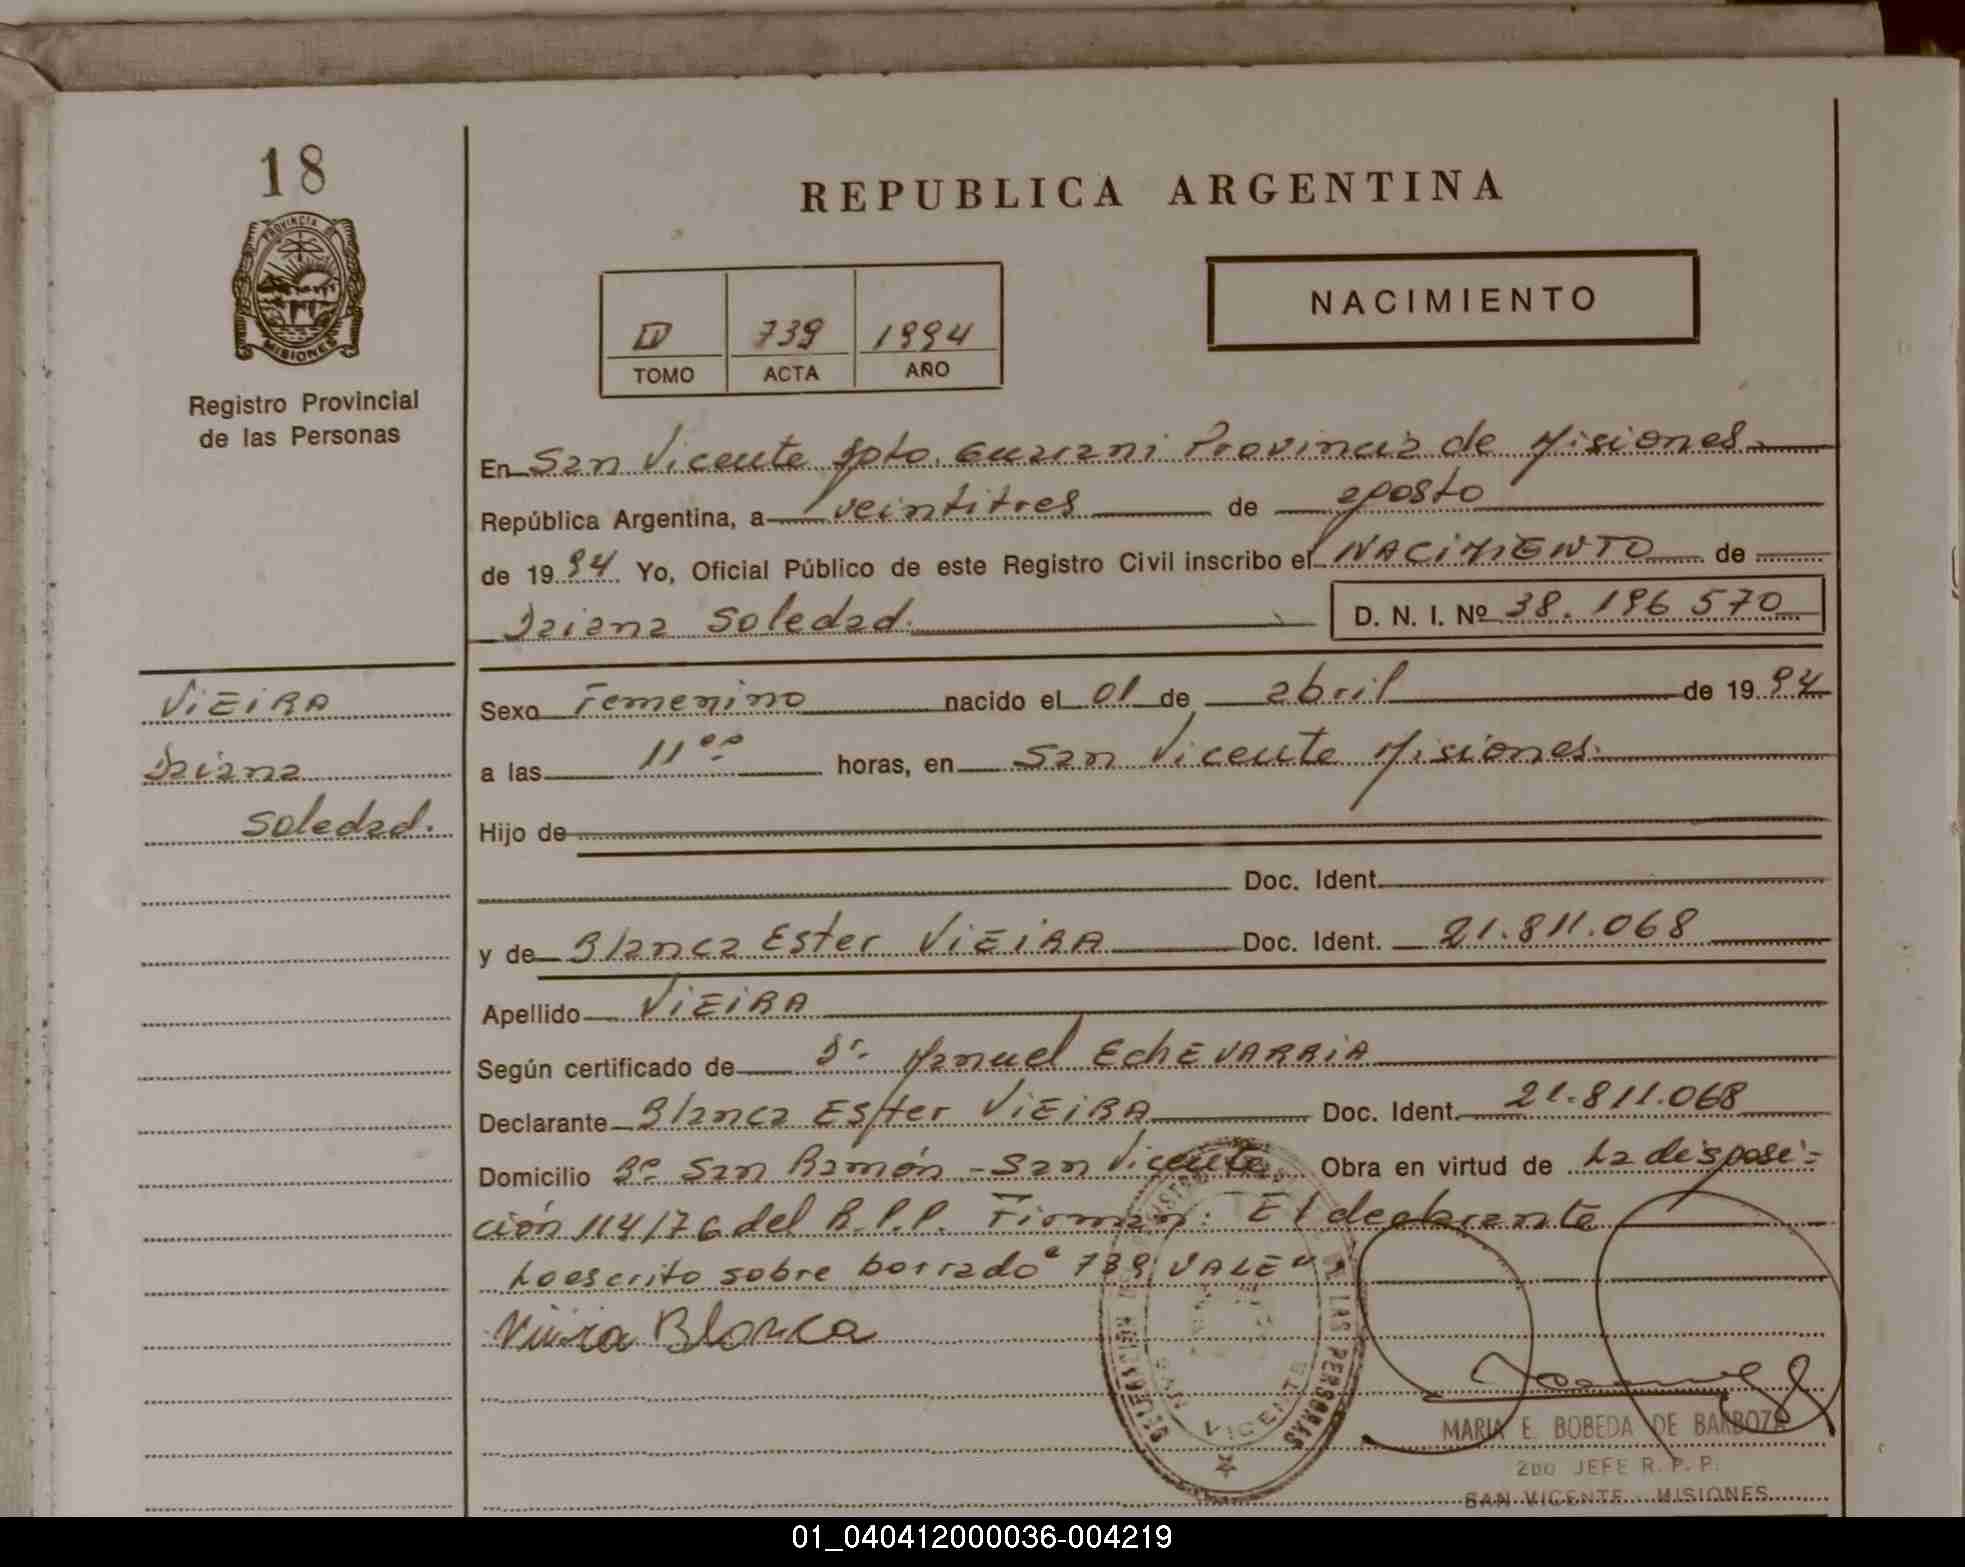 18
PROVINCIA DE
MISIONES
Registro Provincial
de las Personas
REPUBLICA ARGENTINA
NACIMIENTO
739 1994
TOMO ACTA AÑO
En San Vicente Dpto. Guarani Provincia de Misiones
República Argentina, a veintitres de agosto
de 1994 Yo, Oficial Público de este Registro Civil inscribo el NACIMIENTO de
Daiana Soledad. D. N. I. Nº 38.196 570
VIEIRA
Daiana
Soledad.
Sexo Femenino nacido el 01 de abril de 1994
a las 11ºº horas, en San Vicente Misiones.
Hijo de
Doc. Ident.
y de Blanca Ester VIEIRA Doc. Ident. 21.811.068
Apellido VIEIRA
Según certificado de Dr. Manuel EchEVARRIA
Declarante Blanca Ester VIEIRA Doc. Ident. 21.811.068
Domicilio Bº San Ramón - San Vicente Obra en virtud de La disposi-
ción 114/76 del R.P.P. Firman: El declarante
Lo escrito sobre borrado 739 VALE
Vieira Blanca
DELEGACION DE LAS PERSONAS
SAN VICENTE
MARIA E. BOBEDA DE BARBOZA
2DO JEFE R.P.P.
SAN VICENTE - MISIONES
01_040412000036-004219